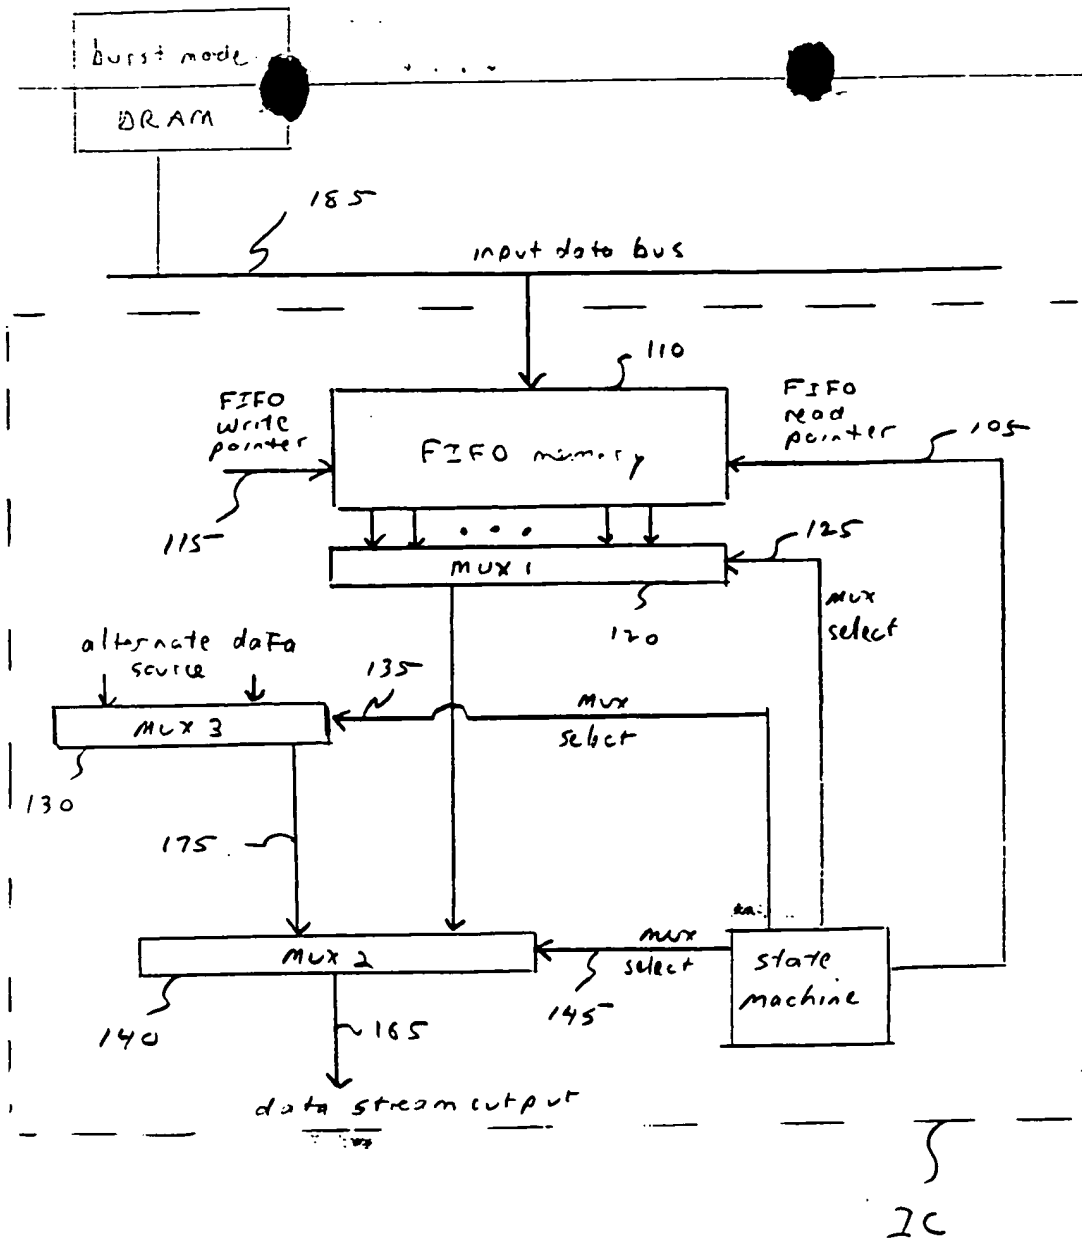 burst mode
DRAM
185
input data bus
110
FIFO
write
pointer
FIFO memory
FIFO
read
pointer
105
115
MUX 1
125
120
MUX
select
alternate data
source
135
MUX 3
MUX
select
130
175
MUX 2
MUX
select
state
machine
140
165
145
data stream output
IC